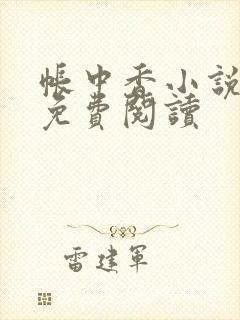 帳中香小說
免費閱讀
雷建軍